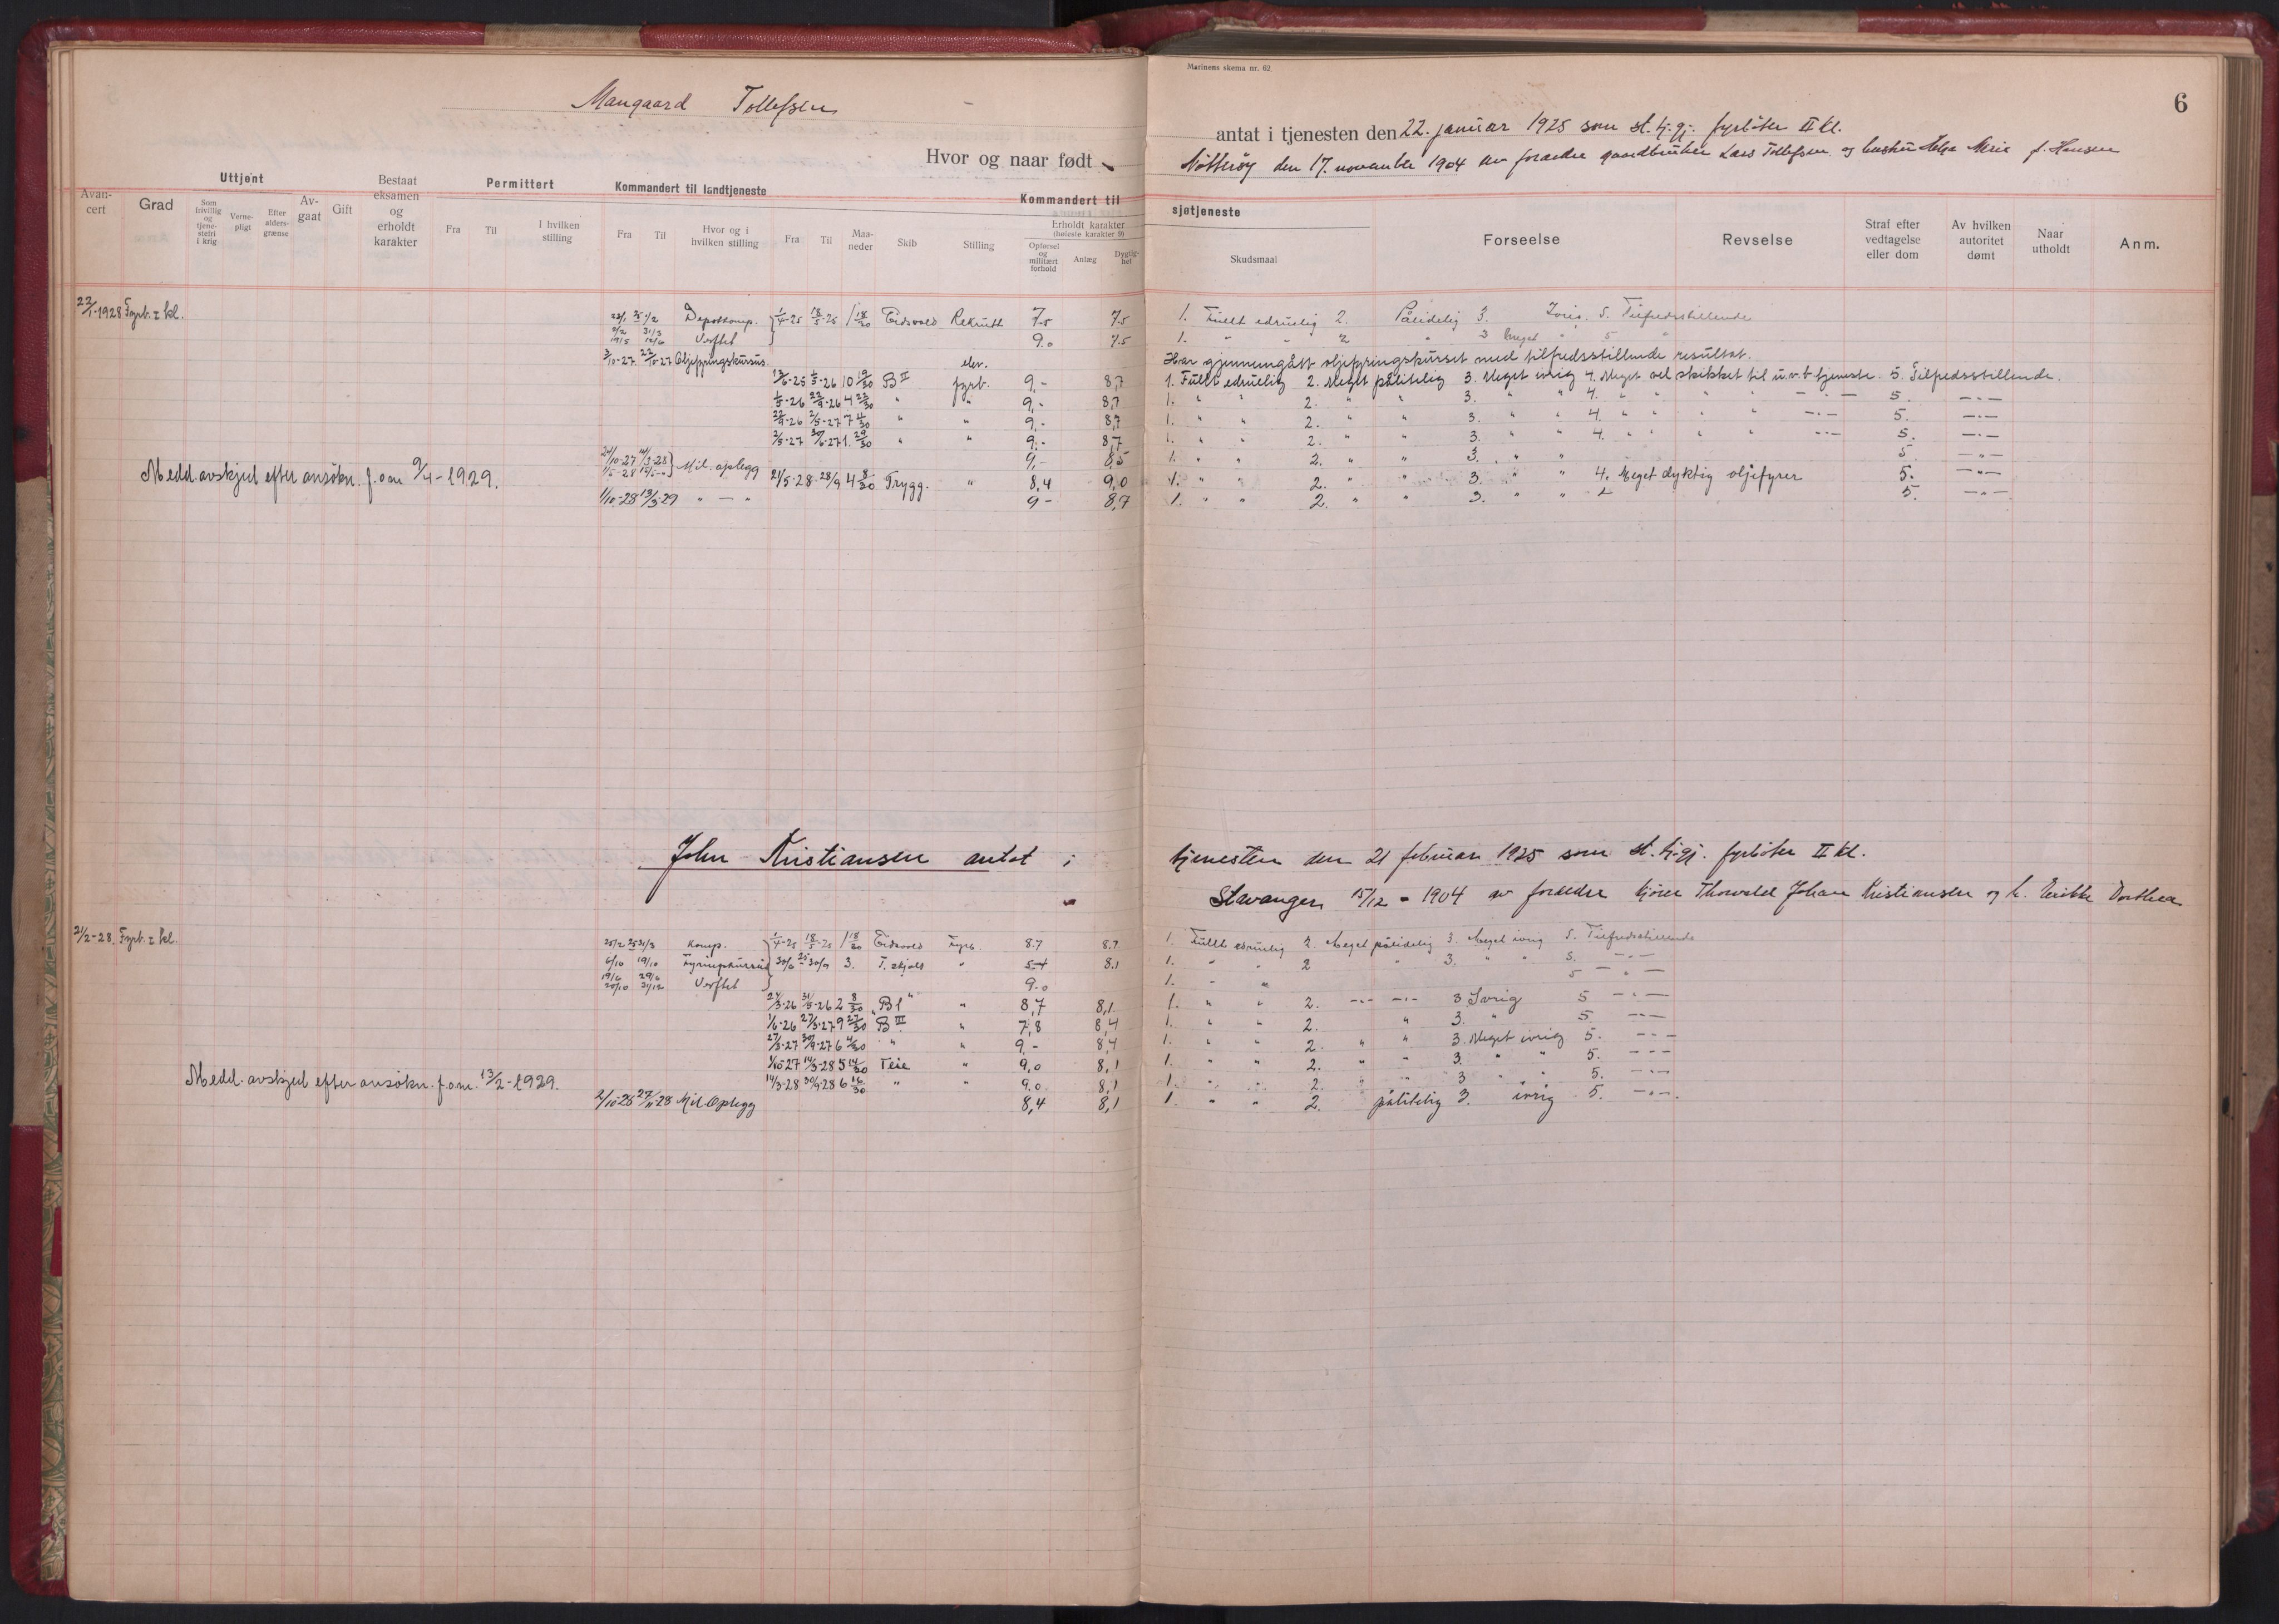 Marinens skema nr. 62
6
Mangaard Tollefsen
antat i tjenesten den 22. januar 1925 som st. tj. gj. fyrböter II kl.
Hvor og naar født
Nøtterøy den 17. november 1904 av foraedre gaardbruker Lars Tollefsen og hustru Helga Marie f. Hansen
Avancert
Grad
Uttjent
Som frivillig og tjenestefri i krig
Vernepligt
Efter aldersgrænse
Avgaat
Gift
Bestaat eksamen og erholdt karakter
Permittert
Fra
Til
I hvilken stilling
Kommandert til landtjeneste
Fra
Til
Hvor og i hvilken stilling
Kommandert til sjøtjeneste
Fra
Til
Maaneder
Skib
Stilling
Erholdt karakter
(høieste karakter 9)
Opførsel og militært forhold
Anlæg
Dygtighet
Skudsmaal
Forseelse
Revselse
Straf efter vedtagelse eller dom
Av hvilken autoritet dømt
Naar utholdt
Anm.
22/1-1928 Fyrb. 2 kl. Depotkomp. 1/4-25 18/5-25 1 18/30 Eidsvold Rekrutt 7.5 7.5 1. Fullt edruelig 2. Pålidelig 3. Ivrig. 5. Tilfredsstillende
Verftet 9.0 7.5 1. " " 2 " 3 Meget " 5 "
3/10-27 22/10-27 Oljefyringskursus elev. Har gjennemgått oljefyringskurset med tilfredsstillende resultat.
13/6-25 1/5-26 10 19/30 B II fyrb. 9,- 8,7 1. Fullt edruelig 2. Meget pålitelig 3. Meget ivrig 4. Meget vel skikket til u.v.b tjeneste. 5. Tilfredsstillende.
1/5-26 22/9-26 4 22/30 " " 9,- 8,7 1. " " 2. " " 3. " " 4. " " " " -"- 5. -"-
22/9-26 2/5-27 7 4/30 " " 9,- 8,7 1. " " 2. " " 3. " " 4. " " " " -"- 5. -"-
2/5-27 30/6-27 1. 29/30 " " 9,- 8,7 1. " " 2. " " 3. " " 4. " " " " -"- 5. -"-
24/10-27 14/3-28 Mil. oplegg 9,- 8,5 1. " " 2. " " 3. " " 5. -"-
Medd. avskjed efter ansökn. f.o.m 9/4-1929. 21/5-28 28/9 4 8/30 Trygg. " 8,4 9,0 1. " " 2. " " 3. " " 4. Meget dyktig oljefyrer 5. -"-
1/10-28 13/3-29 " - " 9- 8,7 1. " " 2. " " 3. " " 5. -"-
John Kristiansen antat i tjenesten den 21 februar 1925 som st. tj. gj. fyrböter II kl.
Stavanger 15/12 - 1904 av foraedre kjörer Thorvald Johan Kristiansen og h. Dorthea
21/2-28 Fyrb. 2 kl. 25/2 25 31/3 Komp. 1/4-25 18/5-25 1 18/30 Eidsvold Fyrb. 8.7 8.7 1. Fullt edruelig 2. Meget pålidelig 3. Meget ivrig 5. Tilfredsstillende
6/10 19/10 Fyringskursus 30/6 25 30/9 3. T. skjold " 8.1 1. " " 2 " 3. " " 5. -"-
19/6 29/6
20/10 31/12 Verftet 9.0 1. " " 5 -"-
24/3-26 31/5-26 2 8/30 "B1" " 8,7 8,1 1. " " 2. -"- -"- 3. Ivrig 5 -"-
1/6-26 27/3-27 9 27/30 B III " 7,8 8,4 1. " " 2. " 3. " 5 -"-
27/3-27 30/9-27 6 4/30 " " 9,- 8,4 1. " " 2. " " 3. Meget ivrig 5. -"-
1/10-27 14/3-28 5 14/30 Teie " 9,0 8,1 1. " " 2. " " 3. " " 5. -"-
Medd. avskjed efter ansökn. f.o.m. 13/2-1929. 14/3-28 30/9-28 6 16/30 " " 9.0 8,1 1. " " 2. " " 3 " " 5. -"-
27/11-28 Mil. Oplegg 8,4 8,1 1. " " 2. pålitelig 3. ivrig 5. -"-